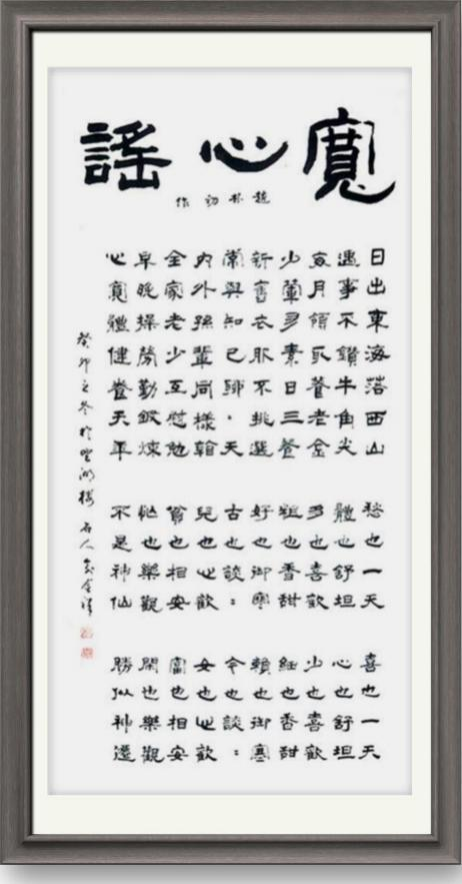 寬心謠
趙朴初作
日出東海落西山 愁也一天 喜也一天
遇事不鑽牛角尖 體也舒坦 心也舒坦
每月領取養老金 多也喜歡 少也喜歡
少葷多素日三餐 粗也香甜 細也香甜
新舊衣服不挑選 好也御寒 賴也御寒
常與知己聊·天 古也談: 今也談:
內外孫輩同樣看 兒也心歡 女也心歡
全家老少互慰勉 貧也相安 富也相安
早晚操勞勤鍛煉 忙也樂觀 閑也樂觀
心寬體健養天年 不是神仙 勝似神僊
癸卯之冬於望湖樓 石人